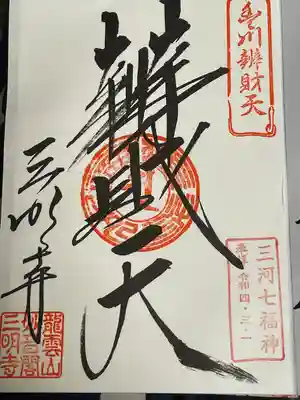 豊川辨財天
辨財天
三河七福神
奉拝 令和四・三・一
三明寺
龍雲山
妙音閣
三明寺